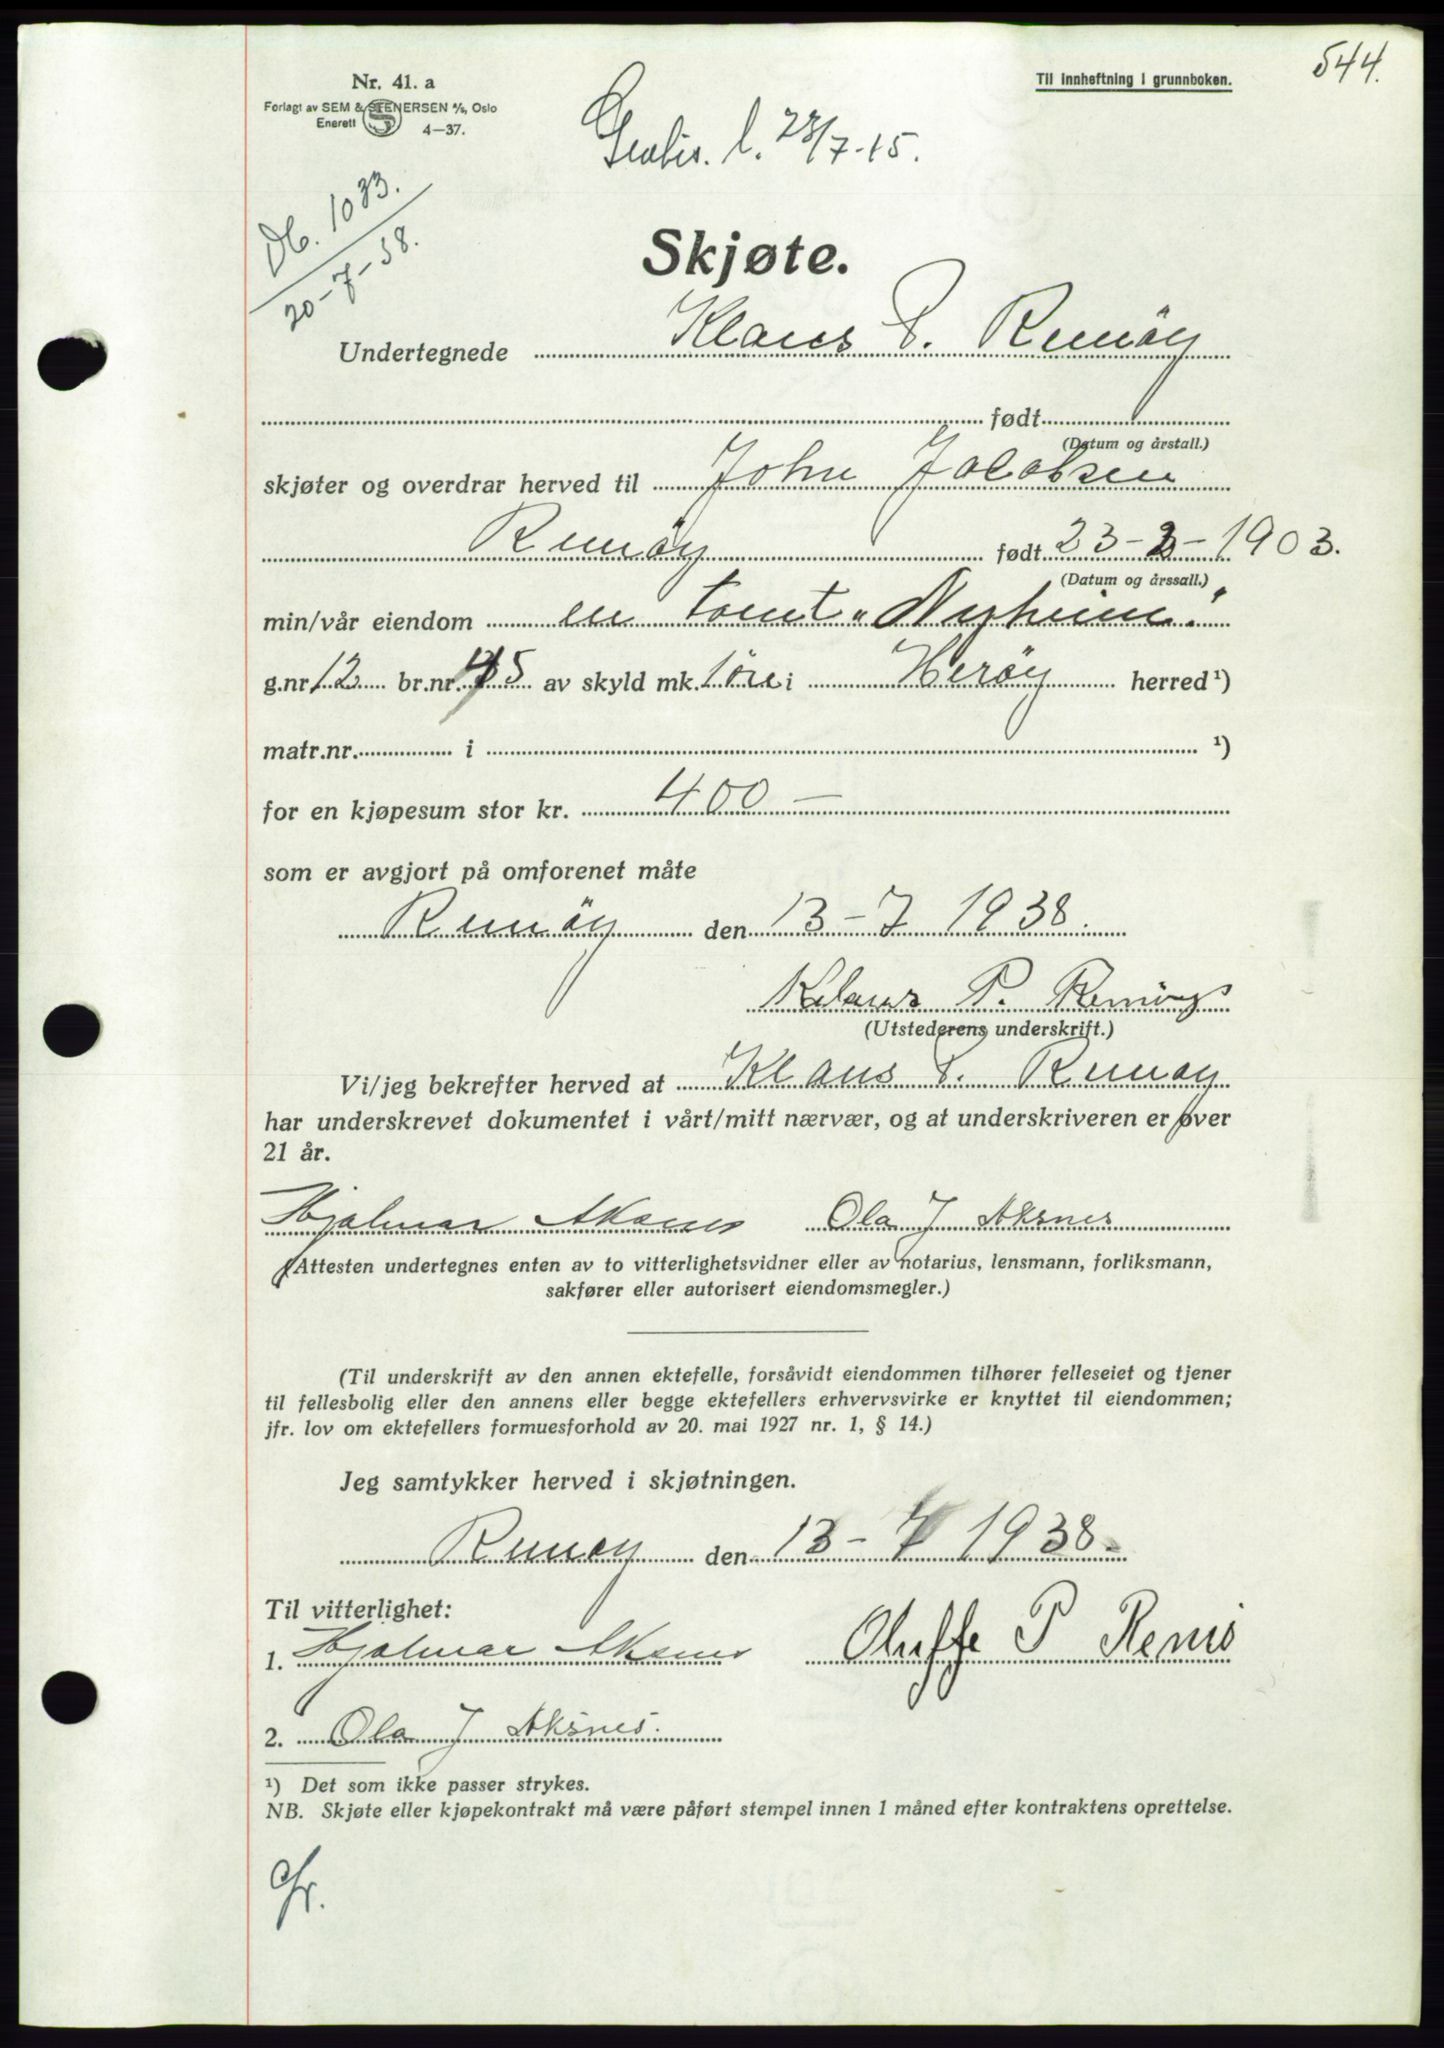 544.
Nr. 41. a
Til innheftning i grunnboken.
Forlagt av SEM & STENERSEN A/S, Oslo
Enerett
4—37.
l. 28/7-15.
Db. 1033.
20-7-38.
Skjøte.
Undertegnede Klaus P. Remöy
født
(Datum og årstall.)
skjøter og overdrar herved til John Jacobsen
Remöy født 23-2-1903.
(Datum og årssall.)
min/vår eiendom en tomt „Nyheim"
g.nr. 12 br.nr. 5 av skyld mk. 1 øre i Heröy herred ¹)
matr.nr. i ¹)
for en kjøpesum stor kr. 400 —
som er avgjort på omforenet måte
Remöy den 13-7 1938.
Klaus P. Remöy
(Utstederens underskrift.)
Vi/jeg bekrefter herved at Klaus P. Remöy
har underskrevet dokumentet i vårt/mitt nærvær, og at underskriveren er over
21 år.
Hjalmar Aksnes Ola J Aksnes
(Attesten undertegnes enten av to vitterlighetsvidner eller av notarius, lensmann, forliksmann,
sakfører eller autorisert eiendomsmegler.)
(Til underskrift av den annen ektefelle, forsåvidt eiendommen tilhører felleseiet og tjener
til fellesbolig eller den annens eller begge ektefellers erhvervsvirke er knyttet til eiendommen;
jfr. lov om ektefellers formuesforhold av 20. mai 1927 nr. 1, § 14.)
Jeg samtykker herved i skjøtningen.
Remoy den 13-7 1938.
Til vitterlighet:
1. Hjalmar Aksnes Oluffe P Remö
2. Ola J Aksnes.
¹) Det som ikke passer strykes.
NB. Skjøte eller kjøpekontrakt må være påført stempel innen 1 måned efter kontraktens oprettelse.